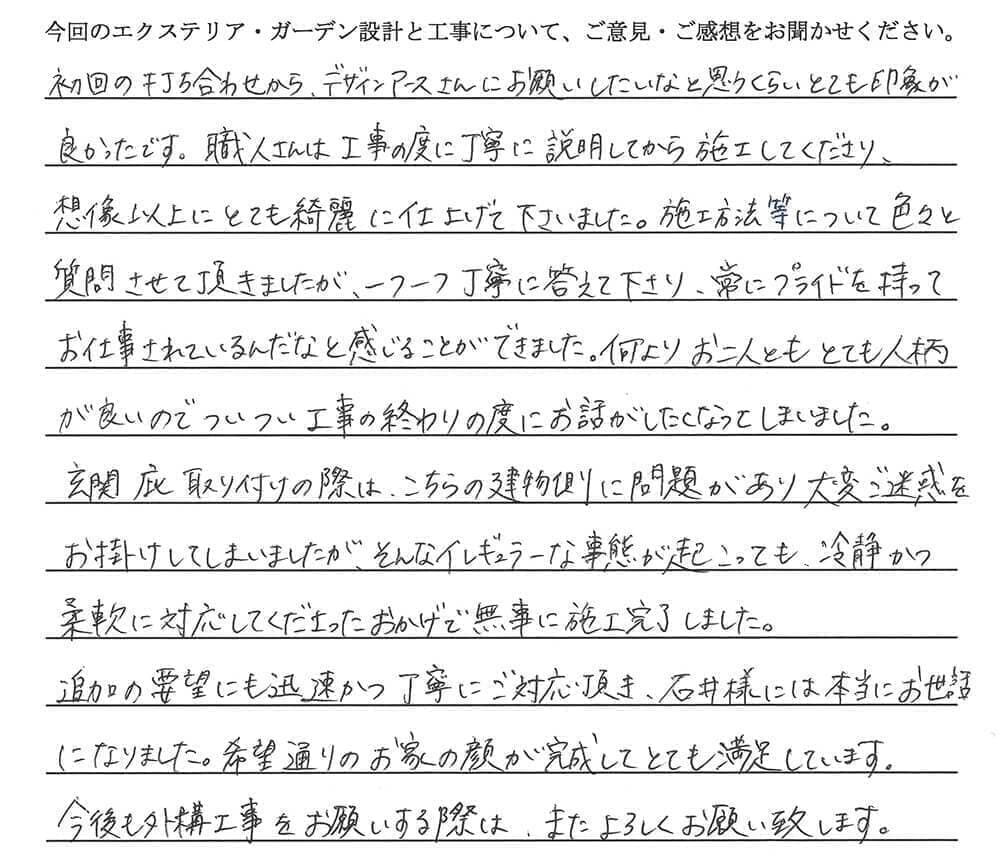 今回のエクステリア・ガーデン設計と工事について、ご意見・ご感想をお聞かせください。
初回の打ち合わせから、デザインアースさんにお願いしたいなと思うくらいとても印象が
良かったです。職人さんは工事の度に丁寧に説明してから施工してくださり、
想像以上にとても綺麗に仕上げて下さいました。施工方法等について色々と
質問させて頂きましたが、一つ一つ丁寧に答えて下さり、常にプライドを持って
お仕事されているんだなと感じることができました。何よりお二人ともとても人柄
が良いのでついつい工事の終わりの度にお話がしたくなってしまいました。
玄関庇取り付けの際は、こちらの建物側に問題があり大変ご迷惑を
お掛けしてしまいましたが、そんなイレギュラーな事態が起こっても、冷静かつ
柔軟に対応してくださったおかげで無事に施工完了しました。
追加の要望にも迅速かつ丁寧にご対応頂き、石井様には本当にお世話
になりました。希望通りのお家の顔が完成してとても満足しています。
今後も外構工事をお願いする際は、またよろしくお願い致します。